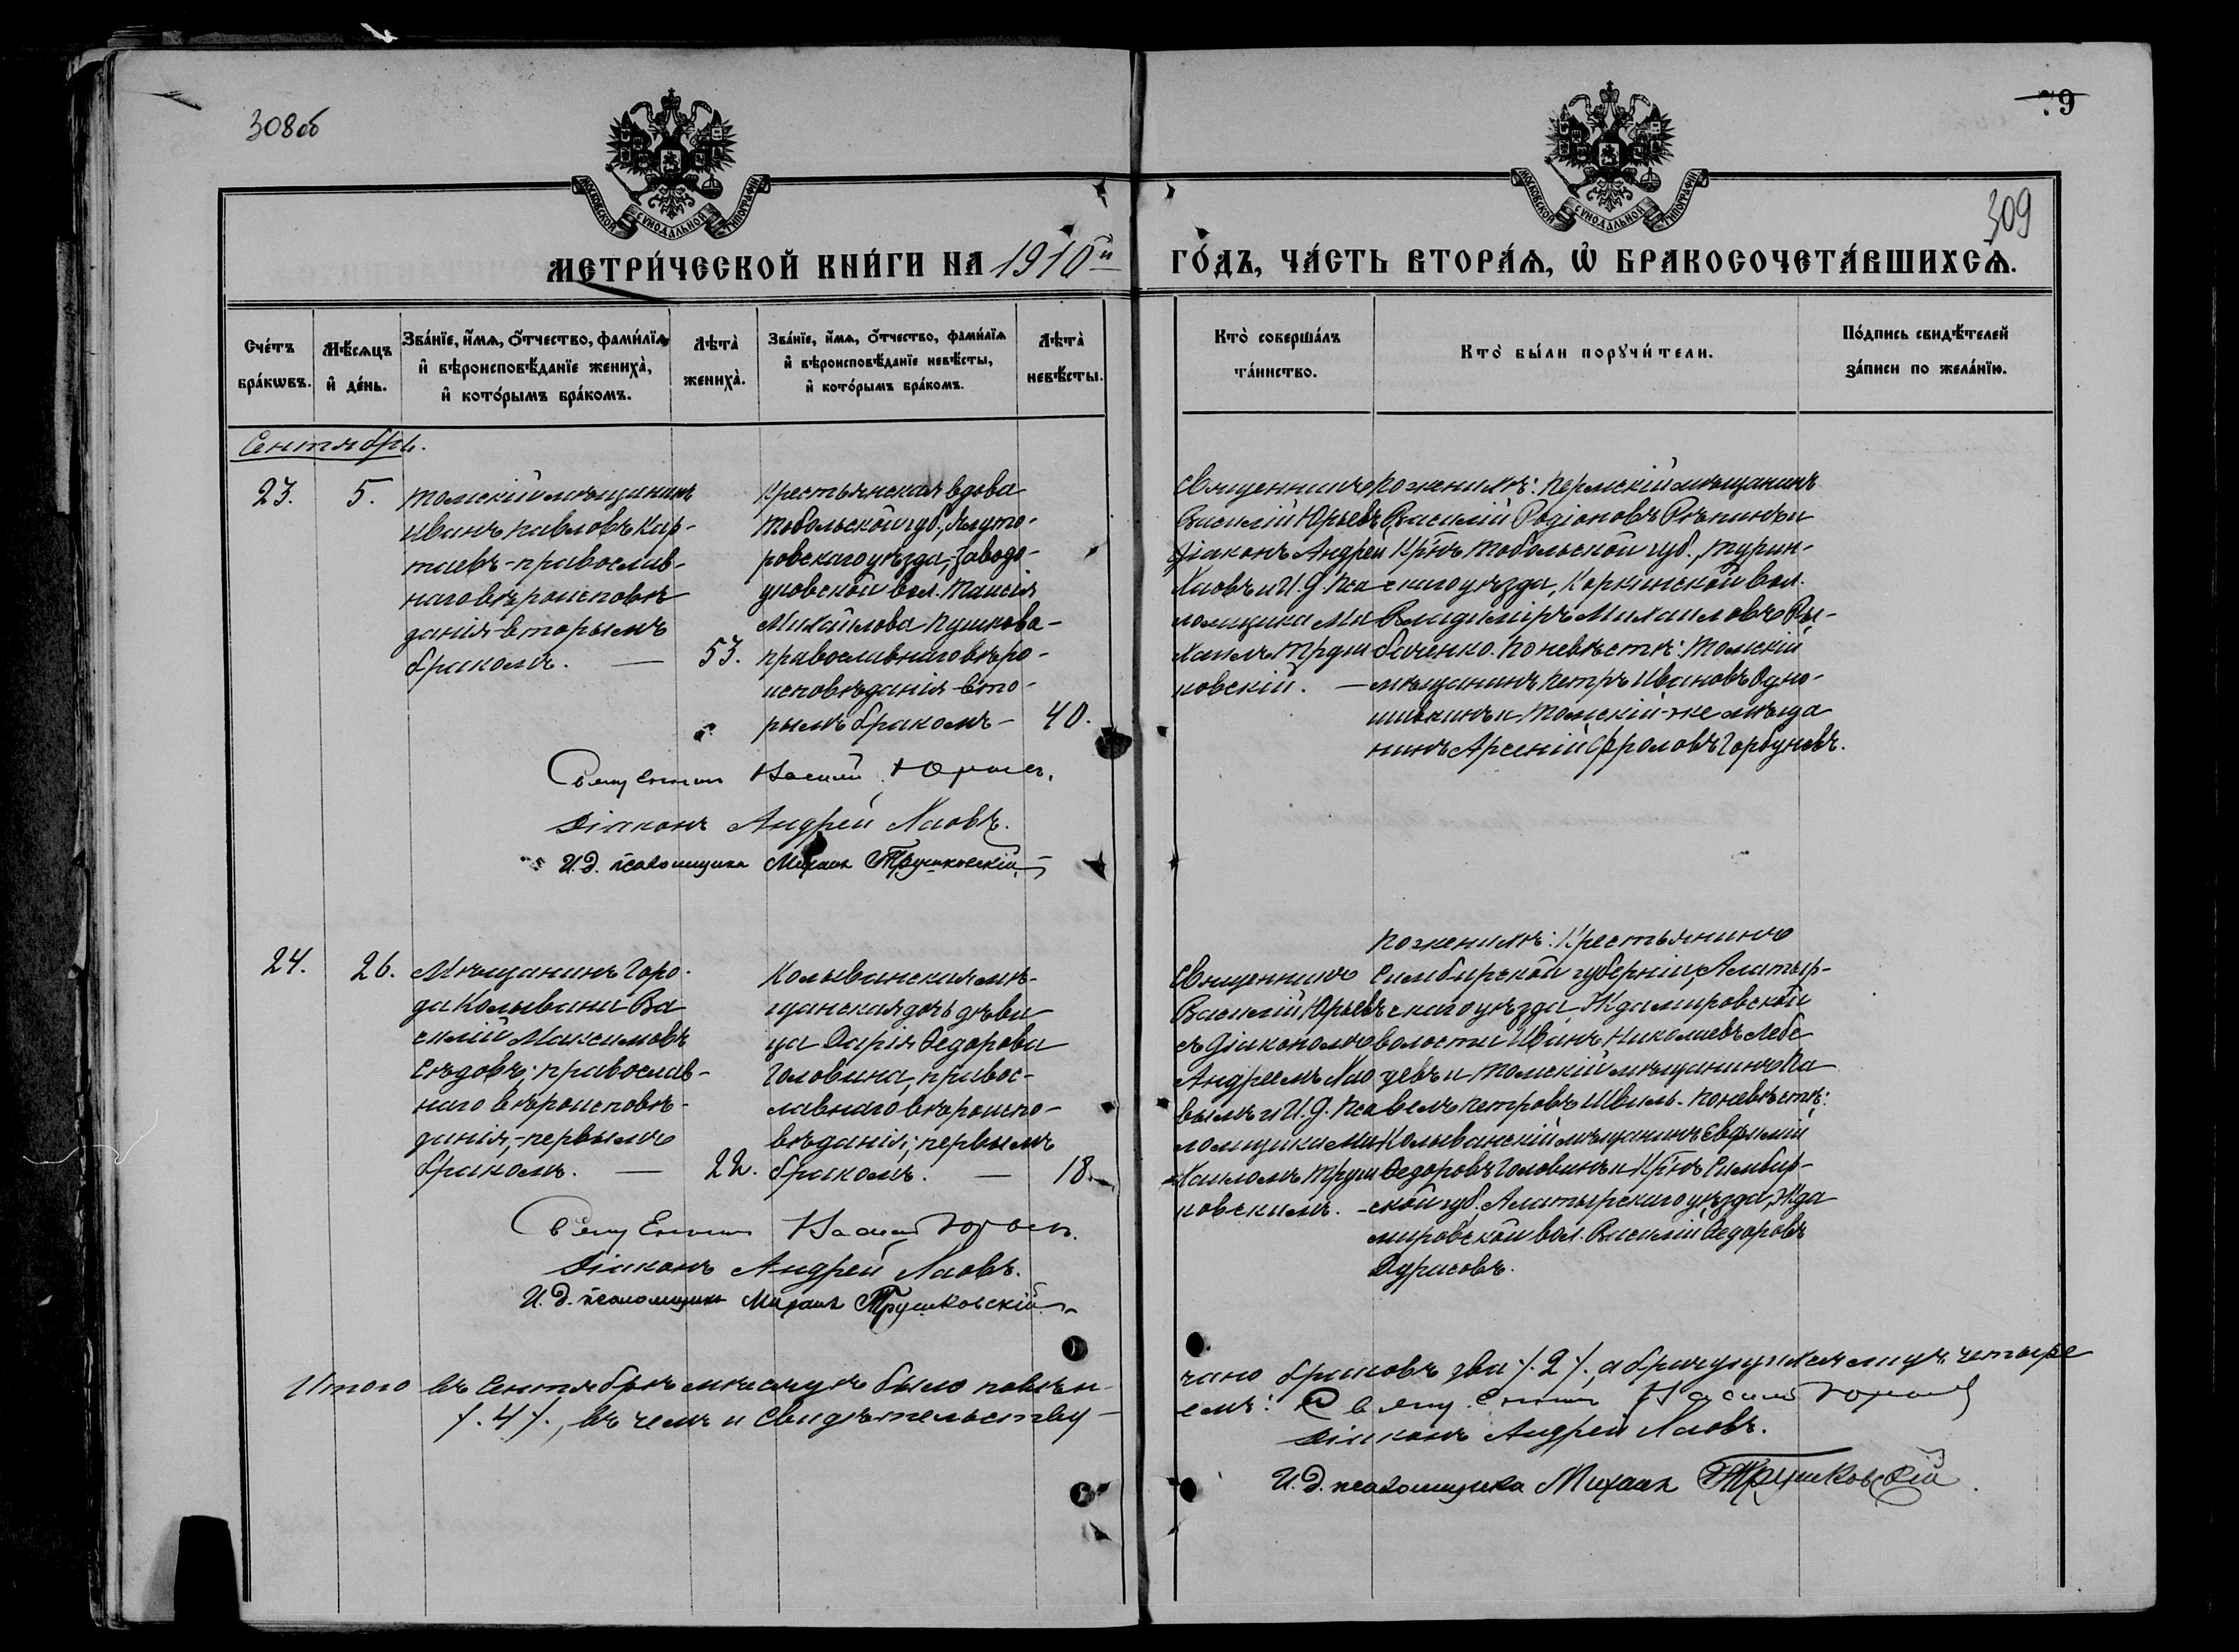 308 об
79
309
МОСКОВСКОЙ СѴНОДАЛЬНОЙ ТИПОГРАФІИ
МОСКОВСКОЙ СѴНОДАЛЬНОЙ ТИПОГРАФІИ
МЕТРИ́ЧЕСКОЙ КНИ́ГИ НА 1910й
ГО́ДЪ, ЧА́СТЬ ВТОРА́Ѧ, Ѡ҆ БРАКОСОЧЕТА́ВШИХСѦ.
Сче́тъ бра́кѡвъ.
Мѣ́сѧцъ и҆ де́нь.
Зва́нїе, и҆́мѧ, о҆́тчество, фами́лїѧ и҆ вѣроисповѣ́данїе жениха̀, и҆ кото́рымъ бра́комъ.
Лѣта̀ жениха̀.
Зва́нїе, и҆́мѧ, о҆́тчество, фами́лїѧ и҆ вѣроисповѣ́данїе невѣ́сты, и҆ кото́рымъ бра́комъ.
Лѣта̀ невѣ́сты.
Кто̀ соверша́лъ та́инство.
Кто̀ бы́ли порꙋчи́тели.
По́дпись свидѣ́телей за́писи по жела́нїю.
Сентябрь.
23.
5.
Томскій мѣщанинъ
Иванъ Павловъ Кар-
таевъ - православ-
наго вѣроисповѣ
данія - вторымъ
бракомъ. —
53.
Крестьянская вдова
Тобольской губ., Ялуто-
ровскаго уѣзда, Заводо-
уковской вол. Таисія
Михайлова Пушкова -
православнаго вѣро-
исповѣданія - вто-
рымъ бракомъ -
40.
Священникъ
Василій Юрьевъ,
Діаконъ Андрей
Лаовъ и И. Д. Пса
ломщика Ми
хаилъ Труш
ковскій. —
По женихѣ: Пермскій мѣщанинъ
Василій Родіоновъ Рѣпинъ и
Кр-нъ Тобольской губ., Турин-
скаго уѣзда, Коркинской вол.
Владиміръ Михаиловъ Ры-
баченко. По невѣстѣ: Томскій
мѣщанинъ Петръ Ивановъ Одно-
шивкинъ и Томскій-же мѣща
нинъ Арсеній Фроловъ Горбуновъ.
Священникъ Василій Юрьевъ.
Діаконъ Андрей Лаовъ.
И. д. псаломщика Михаилъ Трушковскій
24.
26.
Мѣщанинъ Горо-
да Колывани Ва
силій Максимовъ
Сѣдовъ; православ-
наго вѣроисповѣ-
данія, - первымъ
бракомъ. —
22.
Колыванская мѣ-
щанская дочь дѣви
ца Дарія Ѳедорова
Головина, правос-
лавнаго вѣроиспо-
вѣданія; первымъ
бракомъ. —
18.
Священникъ
Василій Юрьевъ
съ Діакономъ
Андреемъ Лао
вымъ и И. Д. Пса
ломщика Ми
хаиломъ Труш
ковскимъ. -
По женихѣ: Крестьянинъ
Симбирской губерніи, Алатыр-
скаго уѣзда, Ждамировской
волости Иванъ Николаевъ Лебе
девъ и Томскій мѣщанинъ Па
велъ Петровъ Швиль. По невѣстѣ:
Колыванскій мѣщанинъ Евфимій
Ѳедоровъ Головинъ и Кр-нъ Симбир-
ской губ. Алатырскаго уѣзда, Жда
мировской вол. Василій Ѳедоровъ
Дурасовъ.
Священникъ Василій Юрьевъ.
Діаконъ Андрей Лаовъ.
И. д. псаломщика Михаилъ Трушковскій
Итого въ Сентябрѣ мѣсяцѣ было повѣн-
чано браковъ два /. 2 /., а брачущихся лицъ четыре
/. 4 /., въ чемъ и свидѣтельству-
емъ: Священникъ Василій Юрьевъ
Діаконъ Андрей Лаовъ.
И. д. псаломщика Михаилъ Трушковскій